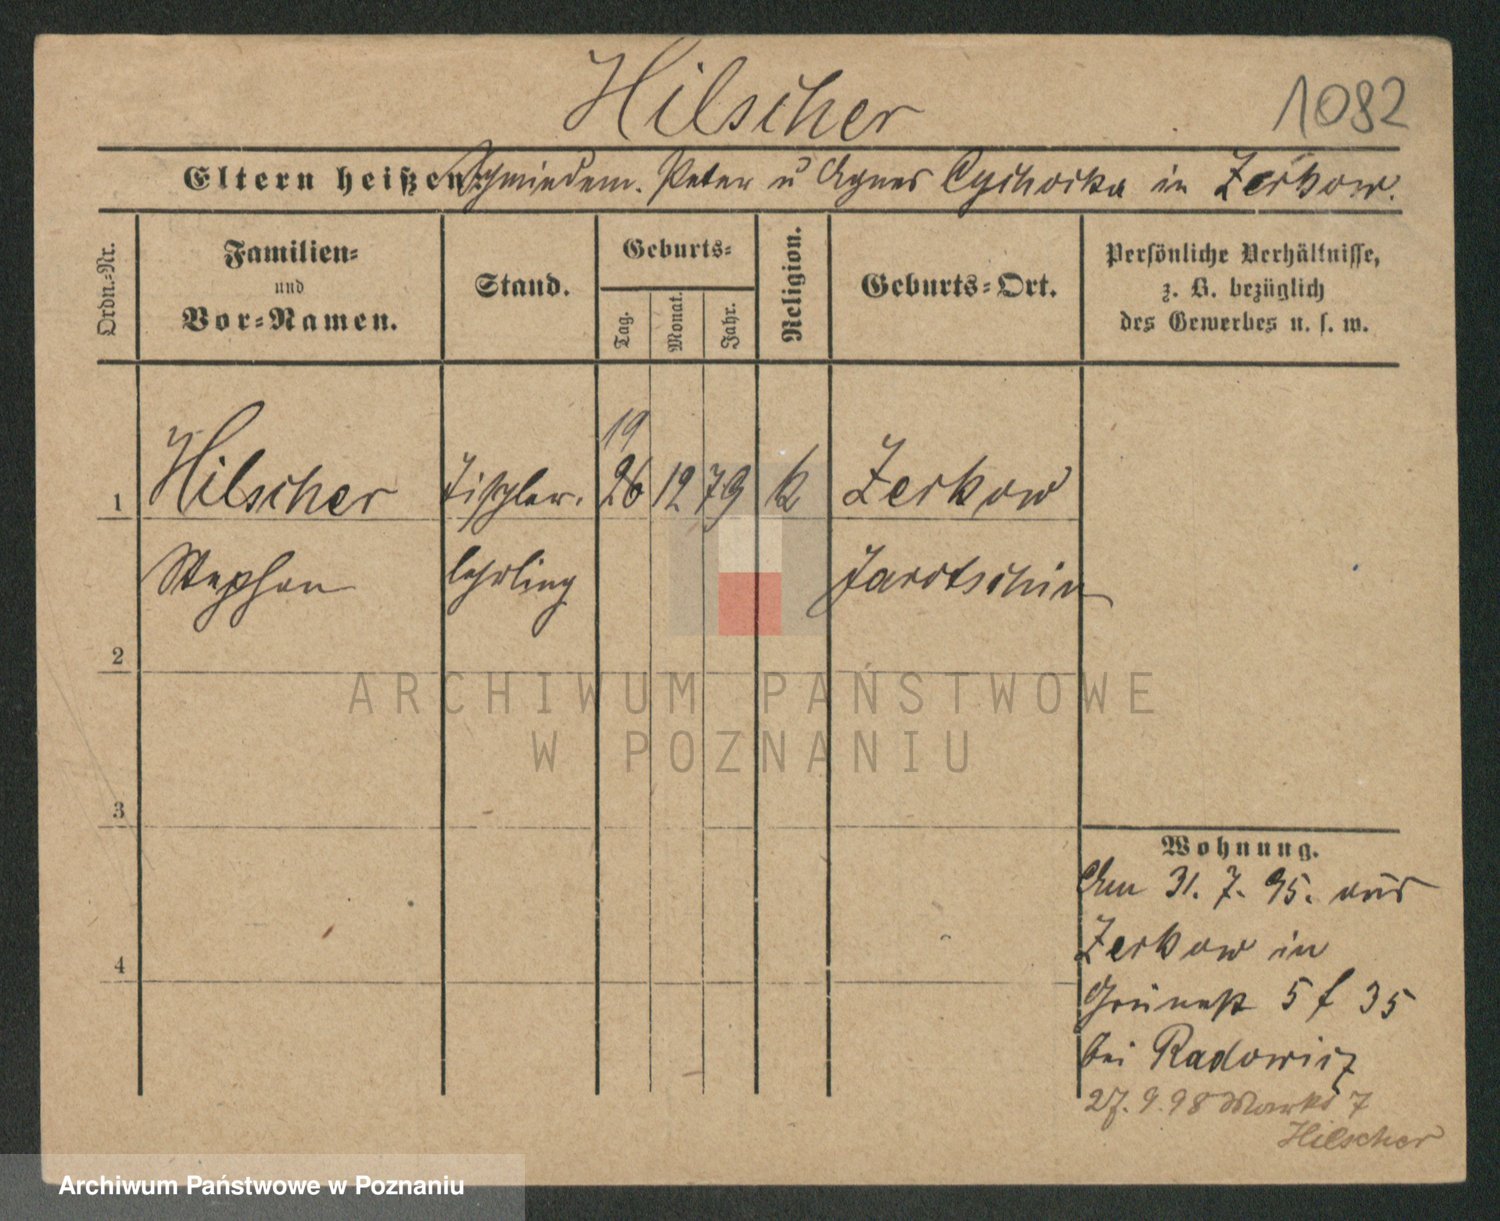 Hilscher
1082
Eltern heißen: Schmiedem. Peter u Agnes Cychocka in Zerkow.
Ordn.-Nr.
Familien-
und
Vor-Namen.
Stand.
Geburts-
Tag.
Monat.
Jahr.
Religion.
Geburts-Ort.
Persönliche Verhältnisse,
z. B. bezüglich
des Gewerbes u. s. w.
19
1 Hilscher Tischler. 26 12 79 k Zerkow
Stephan lehrling Jarotschin
2
ARCHIWUM PAŃSTWOWE
W POZNANIU
3
Wohnung.
Am 31. 7. 95. aus
Zerkow in
4
Grünestr 5 f 35
bei Radowicz
27. 9. 98 Markt 7
Hilscher
Archiwum Państwowe w Poznaniu